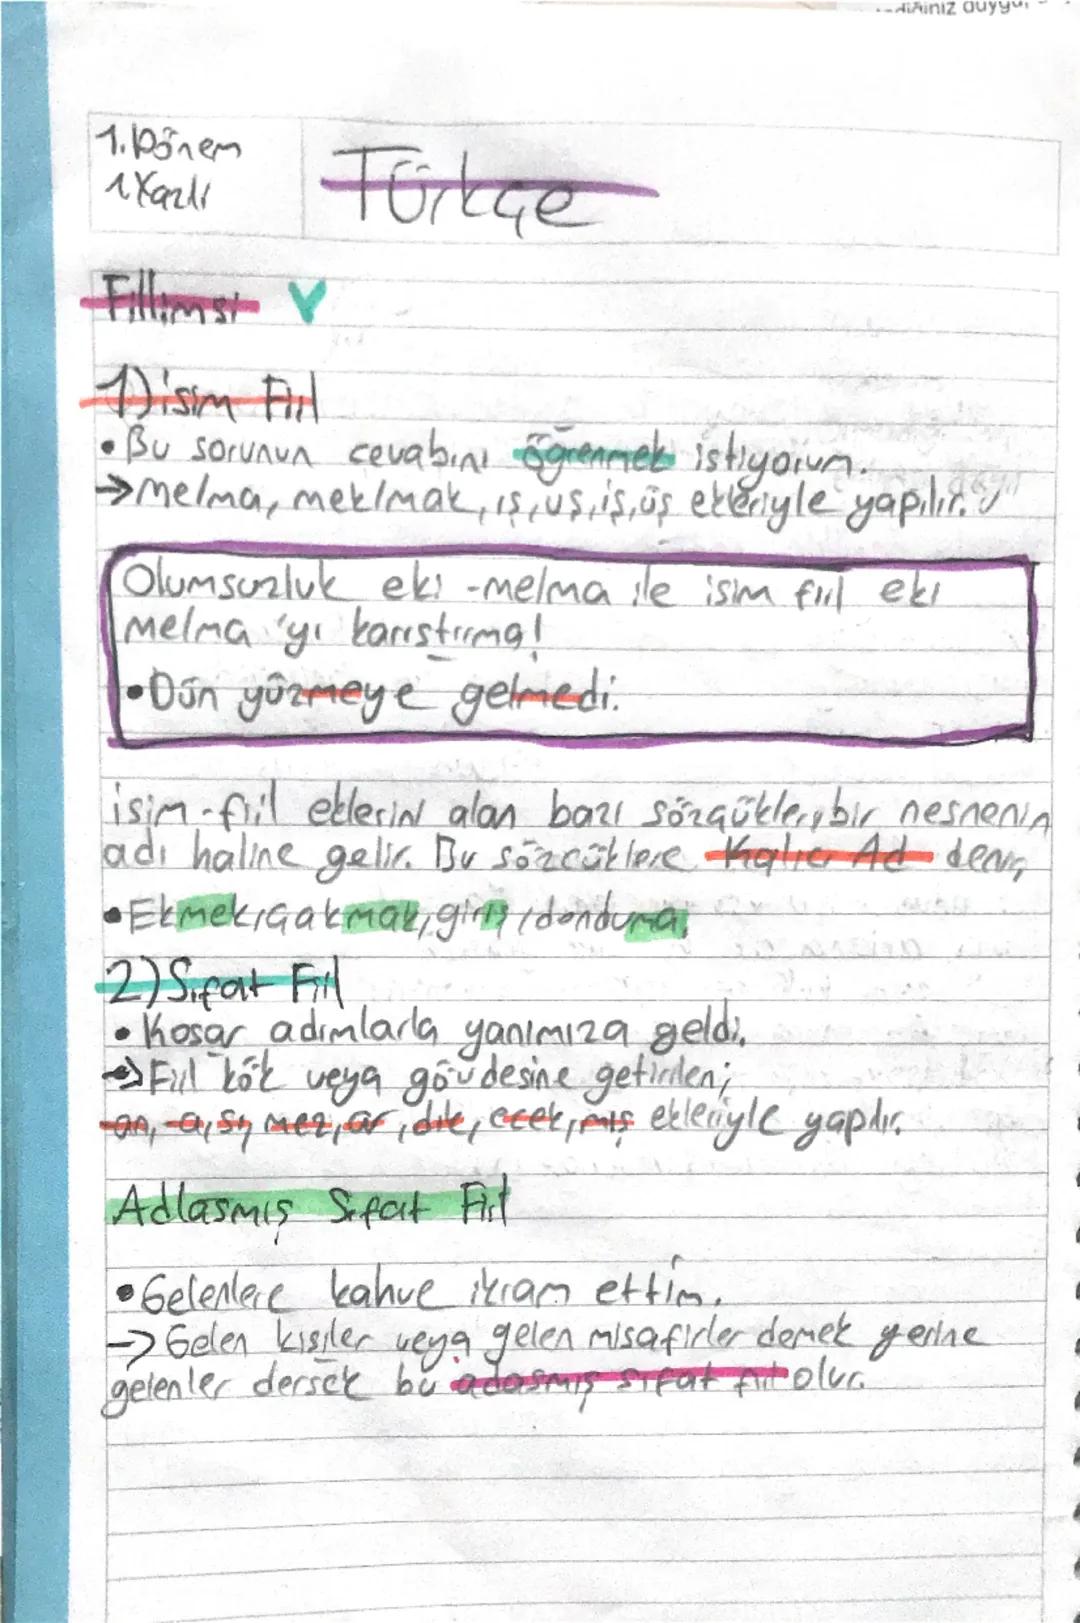 diğiniz duygu,
1.Dönem
1.Yazılı
Türkçe
Fiilimsi
1) isim Fiil
• Bu sorunun cevabını öğrenmek istiyorum.
→ me/ma, mek/mak, ış, uş, iş, üş ekleriyle yapılır.
Olumsuzluk eki -me/ma ile isim fiil eki
me/ma 'yı karıştırma!
• Dün yüzmeye gelmedi.
isim-fiil eklerini alan bazı sözcükler, bir nesnenin
adı haline gelir. Bu sözcüklere Kalıcı Ad denir,
• Ekmek, çakmak, giriş, dondurma,
2) Sıfat Fiil
• Koşar adımlarla yanımıza geldi.
→ Fiil kök veya gövdesine getirilen;
an, -ası, mez, ar, dik, ecek, mış ekleriyle yapılır.
Adlaşmış Sıfat Fiil
• Gelenlere kahve ikram ettim.
→ Gelen kişiler veya gelen misafirler demek yerine
gelenler dersek bu adaşmış sıfat fiil olur.